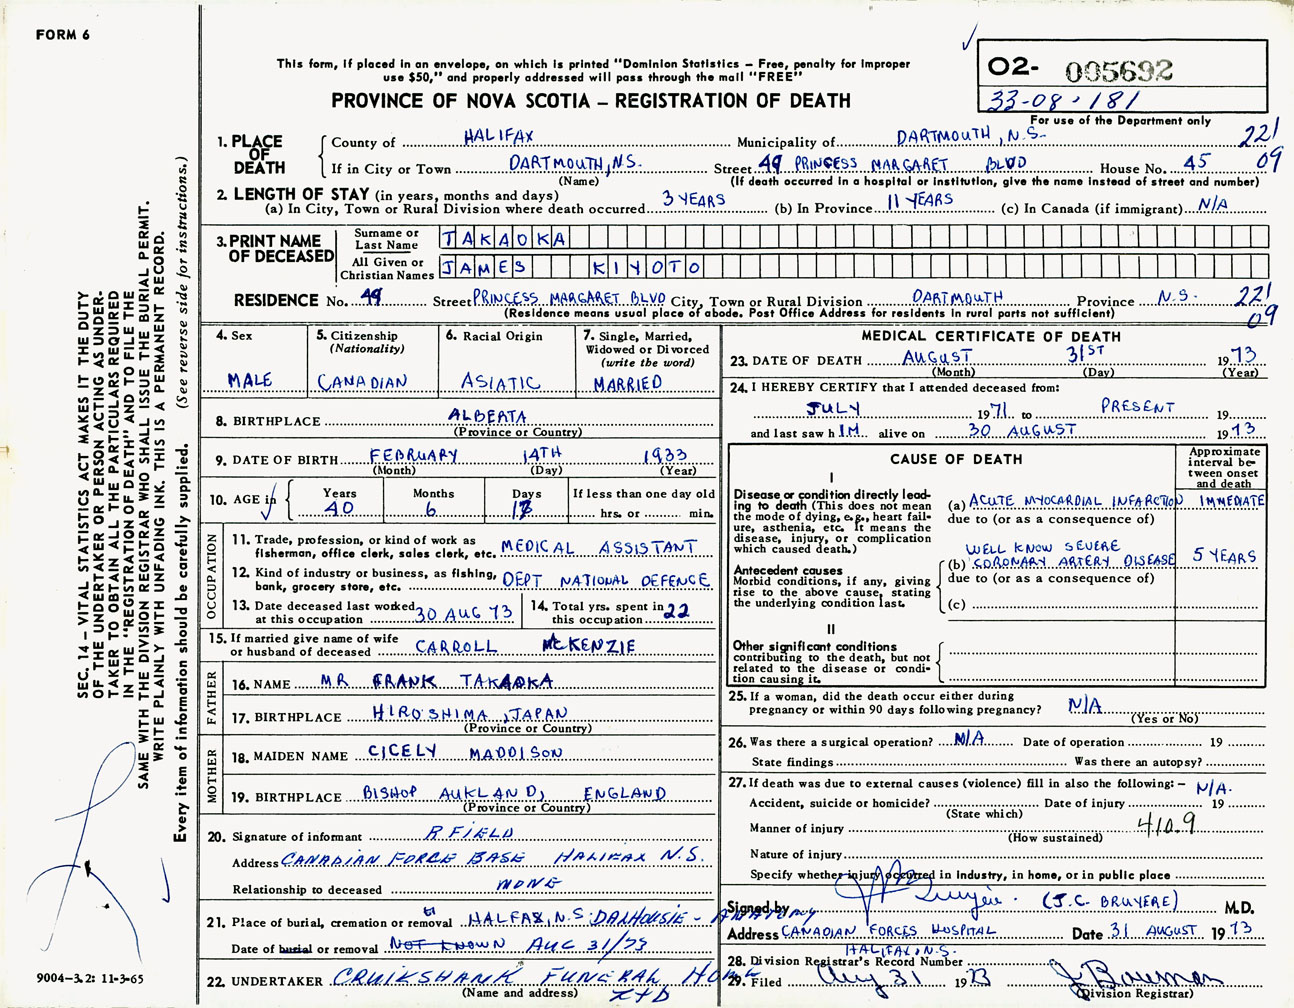 FORM 6
This form, if placed in an envelope, on which is printed "Dominion Statistics – Free, penalty for improper
use $50," and properly addressed will pass through the mail "FREE"
PROVINCE OF NOVA SCOTIA – REGISTRATION OF DEATH
02- 005692
33-08-181
For use of the Department only
1. PLACE OF DEATH
County of HALIFAX Municipality of DARTMOUTH, N.S. 221
If in City or Town DARTMOUTH, N.S. Street 49 PRINCESS MARGARET BLVD House No. 45 09
(Name) (If death occurred in a hospital or institution, give the name instead of street and number)
2. LENGTH OF STAY (in years, months and days)
(a) In City, Town or Rural Division where death occurred 3 YEARS (b) In Province 11 YEARS (c) In Canada (if immigrant) N/A
3. PRINT NAME OF DECEASED
Surname or Last Name TAKAOKA
All Given or Christian Names JAMES KIYOTO
RESIDENCE No. 49 Street PRINCESS MARGARET BLVD City, Town or Rural Division DARTMOUTH Province N.S. 221
(Residence means usual place of abode. Post Office Address for residents in rural parts not sufficient) 09
4. Sex
MALE
5. Citizenship
(Nationality)
CANADIAN
6. Racial Origin
ASIATIC
7. Single, Married,
Widowed or Divorced
(write the word)
MARRIED
8. BIRTHPLACE ALBERTA
(Province or Country)
9. DATE OF BIRTH FEBRUARY 14TH 1933
(Month) (Day) (Year)
10. AGE in
Years Months Days If less than one day old
40 6 17 hrs. or min.
OCCUPATION
11. Trade, profession, or kind of work as
fisherman, office clerk, sales clerk, etc. MEDICAL ASSISTANT
12. Kind of industry or business, as fishing,
bank, grocery store, etc. DEPT NATIONAL DEFENCE
13. Date deceased last worked
at this occupation 30 AUG 73
14. Total yrs. spent in
this occupation 22
15. If married give name of wife
or husband of deceased CARROLL McKENZIE
FATHER
16. NAME MR FRANK TAKAOKA
17. BIRTHPLACE HIROSHIMA, JAPAN
(Province or Country)
MOTHER
18. MAIDEN NAME CICELY MADDISON
19. BIRTHPLACE BISHOP AUKLAND, ENGLAND
(Province or Country)
20. Signature of informant R FIELD
Address CANADIAN FORCE BASE HALIFAX N.S.
Relationship to deceased NONE
21. Place of burial, cremation or removal HALFAX, N.S. DALHOUSIE - ANATOMY
Date of burial or removal NOT KNOWN AUG 31/73
22. UNDERTAKER CRUIKSHANK FUNERAL HOME LTD
(Name and address)
MEDICAL CERTIFICATE OF DEATH
23. DATE OF DEATH AUGUST 31ST 1973
(Month) (Day) (Year)
24. I HEREBY CERTIFY that I attended deceased from:
JULY 1971 to PRESENT 19
and last saw h IM alive on 30 AUGUST 1973
CAUSE OF DEATH
Approximate
interval be-
tween onset
and death
I
Disease or condition directly lead-
ing to death (This does not mean
the mode of dying, e.g., heart fail-
ure, asthenia, etc. It means the
disease, injury, or complication
which caused death.)
(a) ACUTE MYOCARDIAL INFARCTION IMMEDIATE
due to (or as a consequence of)
WELL KNOW SEVERE
(b) CORONARY ARTERY DISEASE 5 YEARS
due to (or as a consequence of)
(c)
Antecedent causes
Morbid conditions, if any, giving
rise to the above cause, stating
the underlying condition last.
II
Other significant conditions
contributing to the death, but not
related to the disease or condi-
tion causing it.
25. If a woman, did the death occur either during
pregnancy or within 90 days following pregnancy? N/A
(Yes or No)
26. Was there a surgical operation? N/A Date of operation 19
State findings Was there an autopsy?
27. If death was due to external causes (violence) fill in also the following: – N/A.
Accident, suicide or homicide? Date of injury 19
(State which)
Manner of injury 410.9
(How sustained)
Nature of injury
Specify whether injury occurred in industry, in home, or in public place
Signed by (J.C. BRUYERE) M.D.
Address CANADIAN FORCES HOSPITAL Date 31 AUGUST 1973
HALIFAX, N.S.
28. Division Registrar's Record Number
29. Filed Aug 31 1973
(Division Registrar)
SEC. 14 – VITAL STATISTICS ACT MAKES IT THE DUTY
OF THE UNDERTAKER OR PERSON ACTING AS UNDER-
TAKER TO OBTAIN ALL THE PARTICULARS REQUIRED
IN THE "REGISTRATION OF DEATH" AND TO FILE THE
SAME WITH THE DIVISION REGISTRAR WHO SHALL ISSUE THE BURIAL PERMIT.
WRITE PLAINLY WITH UNFADING INK. THIS IS A PERMANENT RECORD.
Every item of information should be carefully supplied. (See reverse side for instructions.)
9004-3.2: 11-3-65